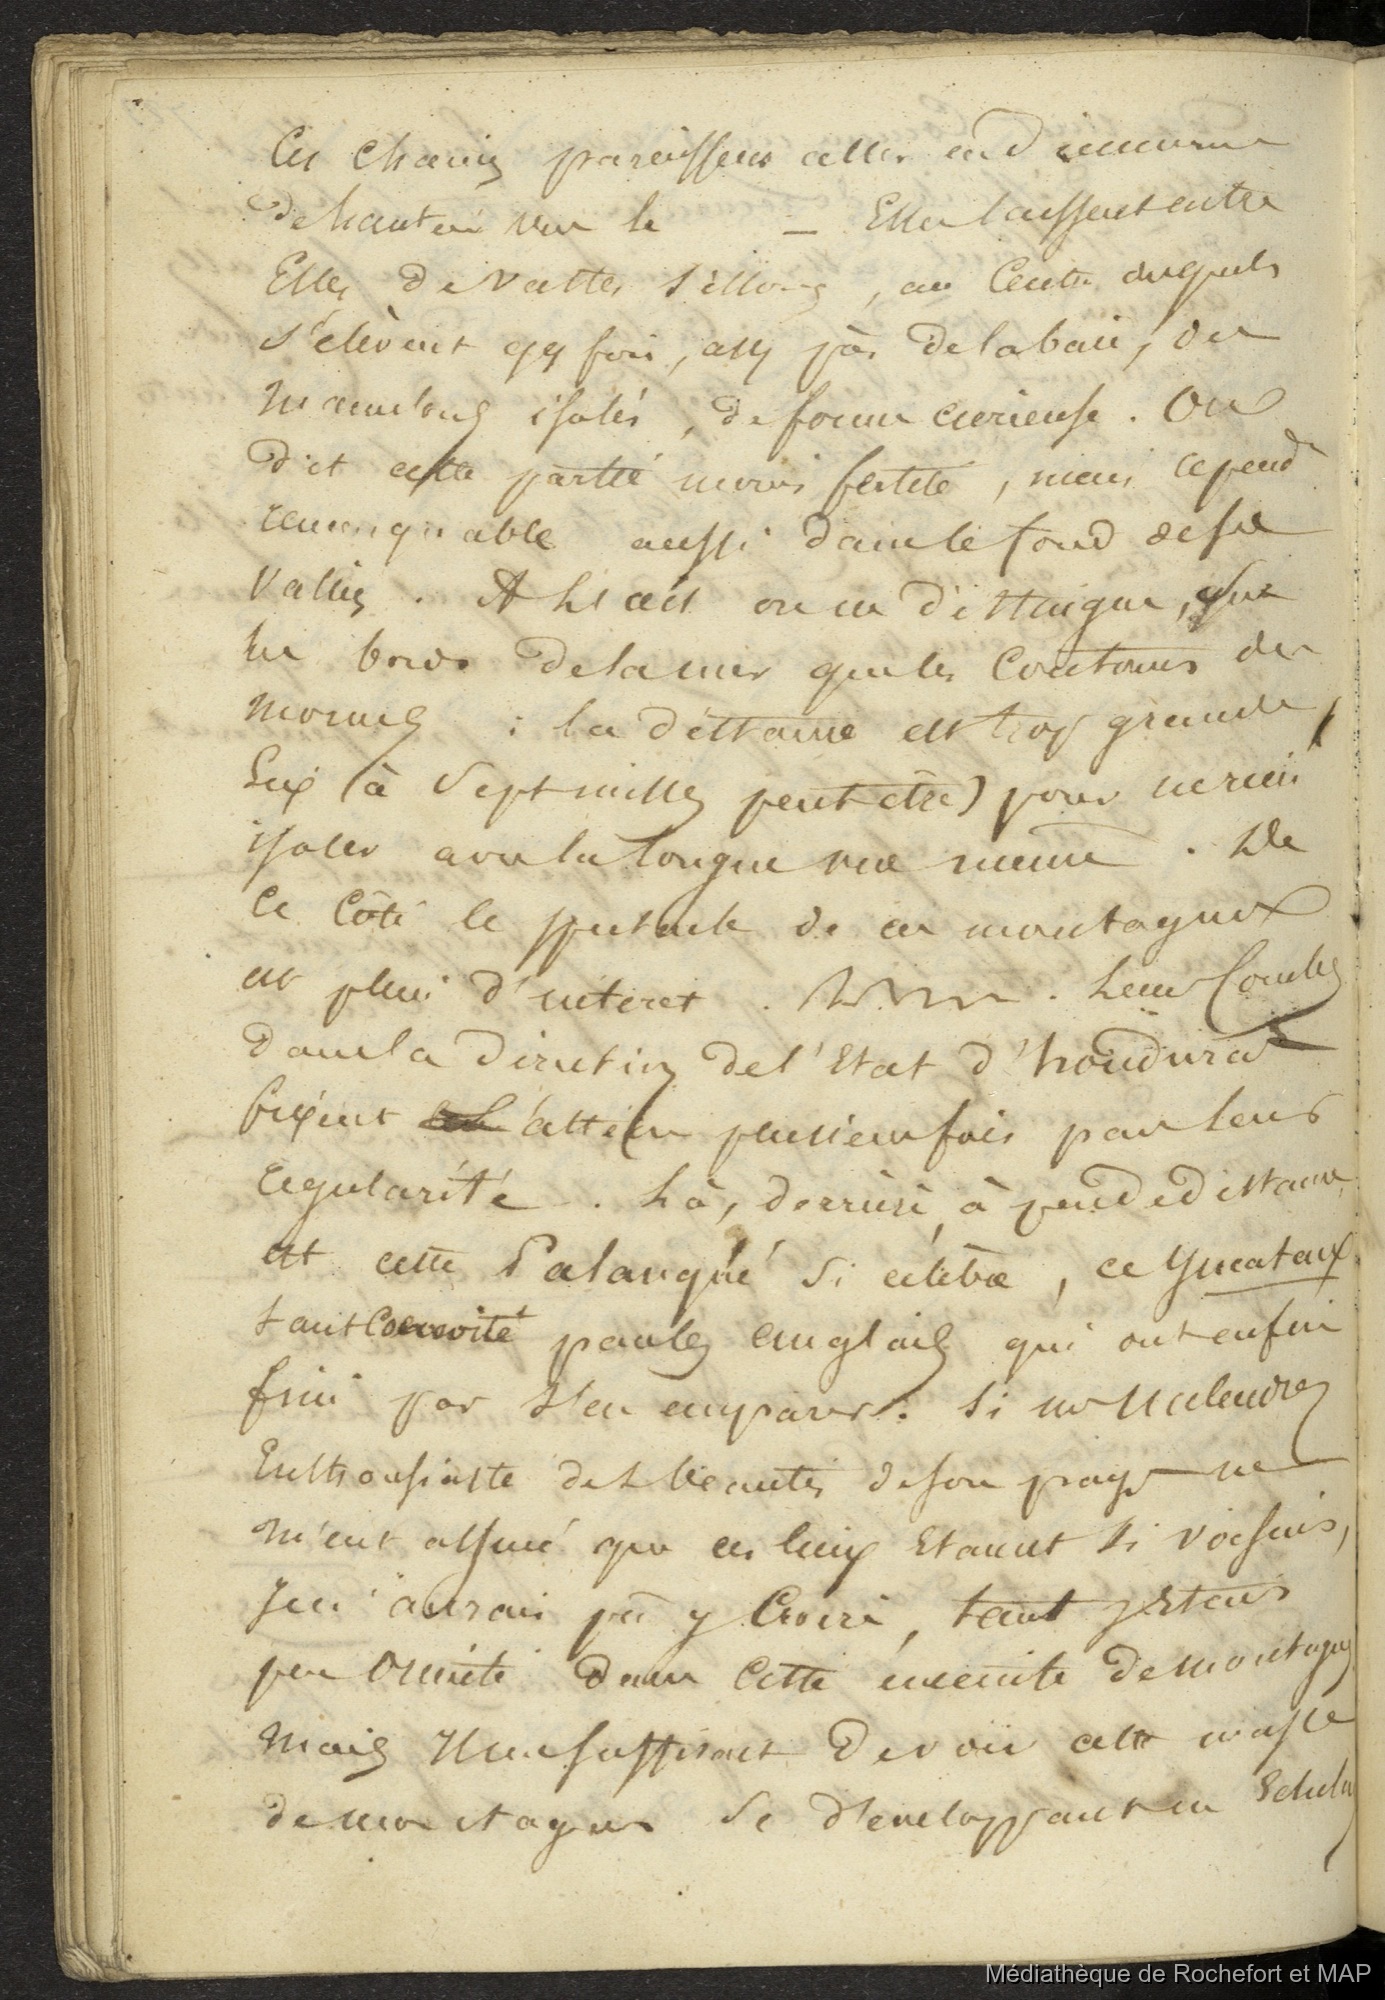 Ces chaines paraissent aller en diminuant
de hauteur vers le — Elles laissent entre
Elles de vastes sillons, au centre desquels
s'élèvent qq fois, assy près de la baie, des
mamelons isolés, de forme curieuse. On
dit cette partie moins fertile, mais cepend.t
remarquable aussi dans le fond de ses
vallées. A l'oeil on ne distingue, que
les bords de la mer que les contours des
mornes : la distance est trop grande
(à sept milles peut être) pour ne rien
isoler avec la longue vue même. De
ce côté le spectacle de ces montagnes
est plein d'interet. Leurs Combes
dans la direction de l'Etat d'honduras
fixent l'att.ion plusieurs fois par leur
régularité. Là, derrière, à peu de distance,
est cette Palanqué si célèbre, ce Yucatan
tant convoité par les anglais qui ont enfin
fini par s'en emparer. Si mr
Enthousiaste des beautés de son pays ne
m'eut assuré que ces lieux etaient si voisins,
Je n'aurais pu y croire, tant j'etais
peu orienté dans cette enceinte de montagnes
mais Il me suffisait de voir cette masse
de montagnes se développant en
Médiathèque de Rochefort et MAP